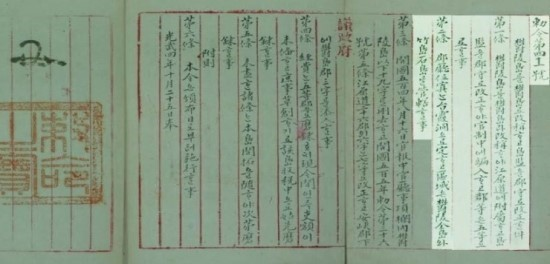 勅令第四十一號
鬱陵島를鬱島로改稱ᄒᆞ고島監을郡守로改正ᄒᆞᆫ件
第一條 鬱陵島를鬱島라改稱ᄒᆞ야江原道에附屬ᄒᆞ고島
監을郡守로改正ᄒᆞ야官制中에編入ᄒᆞ고郡等은五等으로
ᄒᆞᆯ事
第二條 郡廳位置는台霞洞으로定ᄒᆞ고區域은鬱陵全島와
竹島石島를管轄ᄒᆞᆯ事
第三條 開國五百四年八月十六日官報中官廳事項欄內鬱
陵島以下十九字를刪去ᄒᆞ고開國五百五年勅令第三十六
號第五條江原道二十六郡의六字는七字로改正ᄒᆞ고安峽郡下
議政府
에鬱島郡三字를添入ᄒᆞᆯ事
第四條 經費는五等郡으로磨鍊호ᄃᆡ現今間인즉吏額이
未備ᄒᆞ고庶事草創ᄒᆞ기로該島收稅中으로姑先磨
鍊ᄒᆞᆯ事
第五條 未盡ᄒᆞᆫ諸條는本島開拓을隨ᄒᆞ야次第磨
鍊ᄒᆞᆯ事
附則
第六條 本令은頒布日로부터施行ᄒᆞᆯ事
光武四年十月二十五日奉